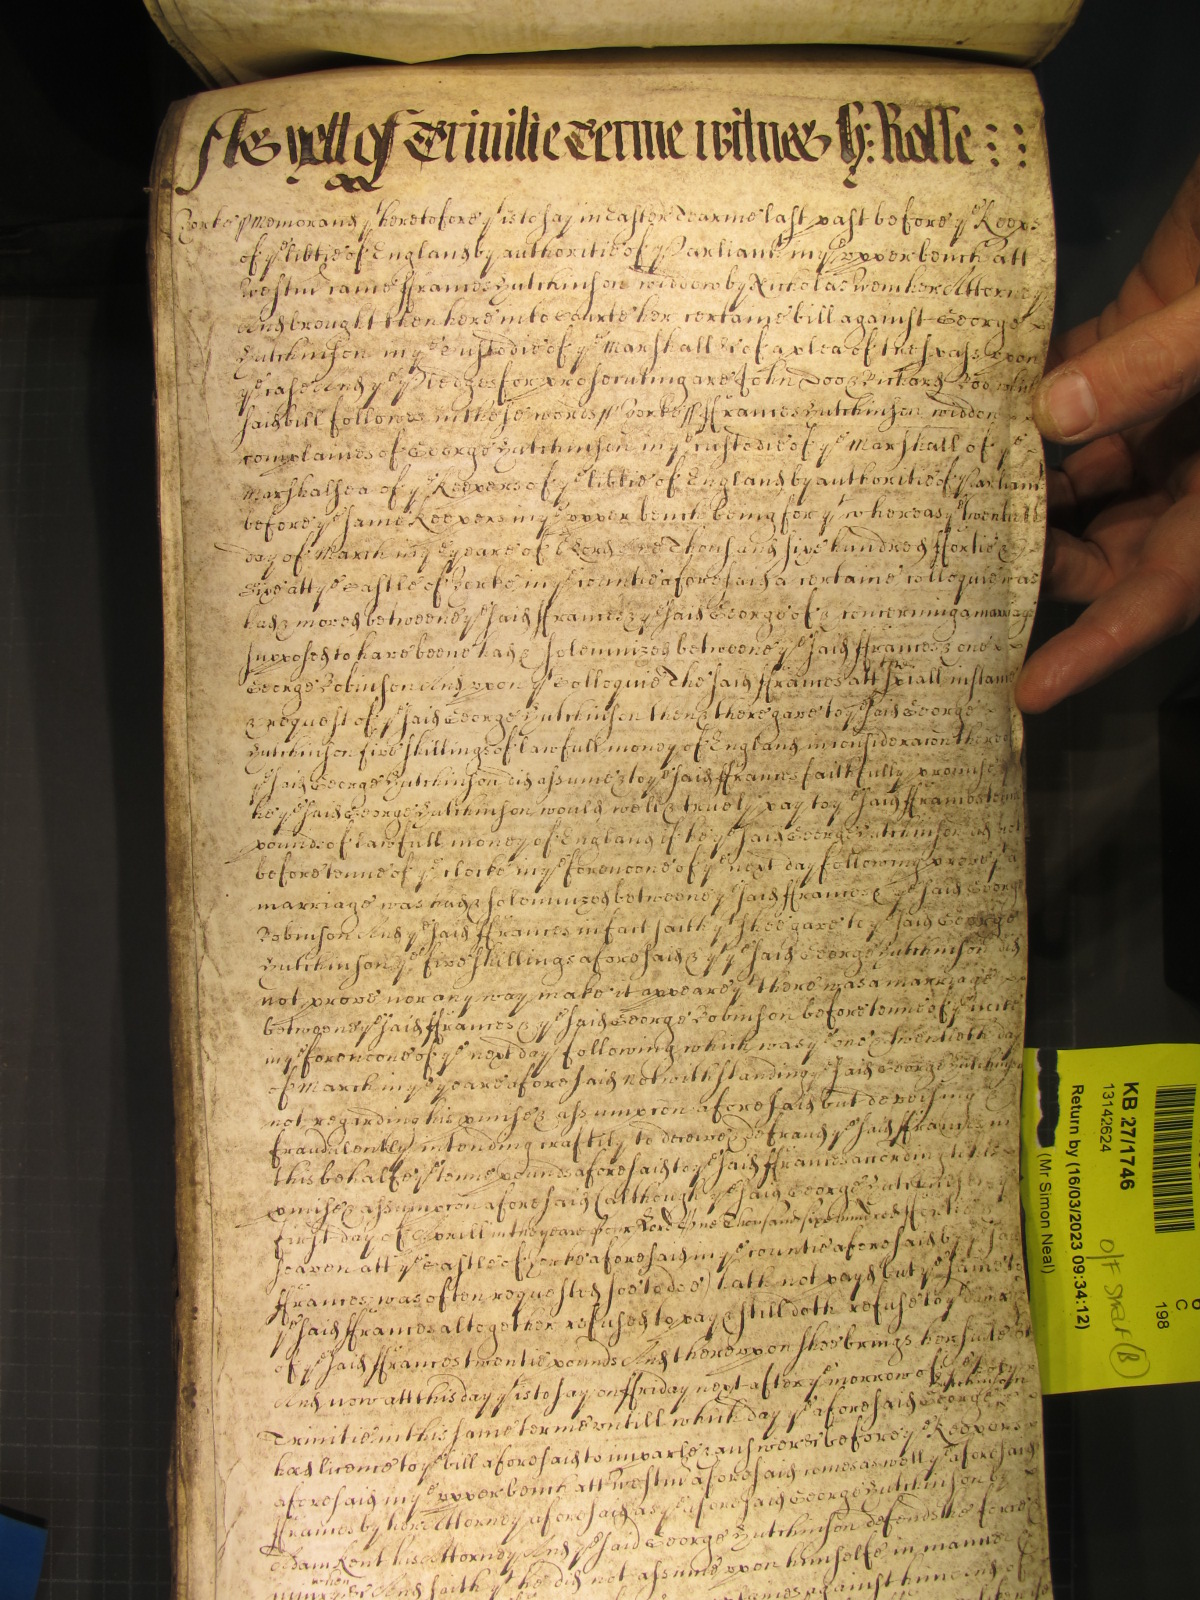 As yett of Trinitie Terme witnes H: Rolle
Yorke ss Memorand yt heretofore yt is to say in Easter Tearme last past before ye Keeps
of ye lib'tie of England by authoritie of ye Parliamt in ye upper bench att
Westm' came Frances Hutchinson widdow by Nicholas her Attorney
And brought then here into Courte her certaine bill against George
Hutchinson in ye custodie of ye Marshall &c of a plea of trespass upon
ye case And ye pledges for prosecuting are John Doo & Richard Roo which
said bill followes in these words ss Yorke ss Frances Hutchinson widdow
complaines of George Hutchinson in ye custodie of ye Marshall of ye
Marshalsea of ye Keepers of ye lib'tie of England by authoritie of Parliamt
before ye same Keepers in ye upper bench being for yt whereas ye twentieth
day of March in ye yeare of Lord One Thousand six hundred Fortie &
att ye Castle of Yorke in ye countie aforesaid a certaine colloquie was
had & moved betweene ye said Frances & ye said George of & concerning a marriage
supposed to have beene had & solemnized betweene ye said Frances & one
George Robinson And upon yt Colloquie The said Frances att ye speciall instance
& request of ye said George Hutchinson then & there gave to ye said George
Hutchinson five shillings of lawfull money of England in consideracon thereof
ye said George Hutchinson did assume & to ye said Frances faithfully promise yt
he ye said George Hutchinson would well & truely pay to ye said Frances tenne
pounds of lawfull money of England if he ye said George Hutchinson did not
before tenne of ye clocke in ye forenoone of ye next day following prove yt a
marriage was had & solemnized betweene ye said Frances & ye said George
Robinson And ye said Frances in fact saith yt shee gave to ye said George
Hutchinson ye five shillings aforesaid & yt ye said George Hutchinson did
not prove nor any way make it appeare yt there was a marriage
betweene ye said Frances & ye said George Robinson before tenne of ye clocke
in ye forenoone of ye next day following which was ye one & twentieth day
of March in ye yeare aforesaid Notwithstanding ye said George Hutchinson
not regarding his p'mise & assumpcon aforesaid but devising &
fraudulently intending craftily to deceive & defraud ye said Frances in
this behalfe ye tenne pounds aforesaid to ye said Frances according to
p'mise & assumpcon aforesaid (although ye said George Hutchinson
first day of Aprill in the yeare of our Lord One Thousand six hundred Fortie
seaven att ye Castle of Yorke aforesaid in ye countie aforesaid by ye said
Frances was often requested soe to doe) hath not payd but ye same to
ye said Frances altogether refused to pay & still doth refuse to ye damage
of ye said Frances twentie pounds And thereupon shee brings her suite &c
And now att this day yt is to say on Friday next after ye morrow of ye holy
Trinitie in this same terme untill which day ye aforesaid George Hutchinson
had licence to ye bill aforesaid to imparle & answere &c before ye Keepers
aforesaid in ye upper bench att Westm' aforesaid comes as well ye aforesaid
Frances by her Attorney aforesaid as ye aforesaid George Hutchinson by
Kent his Attorney And ye said George Hutchinson defends the force &
when &c And saith yt he did not assume upon himselfe in manner
against him And of
KB 27/1746
13142624
Return by (16/03/2023 09:34:12)
(Mr Simon Neal)
C
198